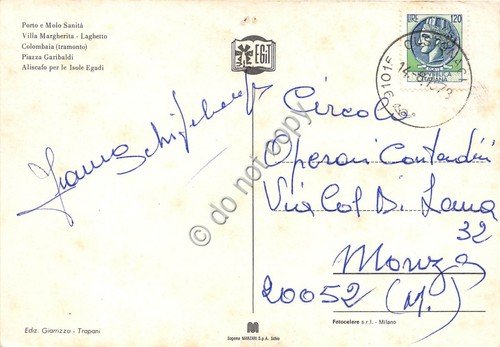 Porto e Molo Sanità
Villa Margherita - Laghetto
Colombaia (tramonto)
Piazza Garibaldi
Aliscafo per le Isole Egadi
EGiT
LIRE 120
91015
Circolo
Operai Contadini
Via Col Di Lana
32
Monza
20052 (M.)
Franco
do not copy
Ediz. Giarrizzo - Trapani
M
Sagome MANZARI S.p.A. Schio
Fotocelere s.r.l. - Milano